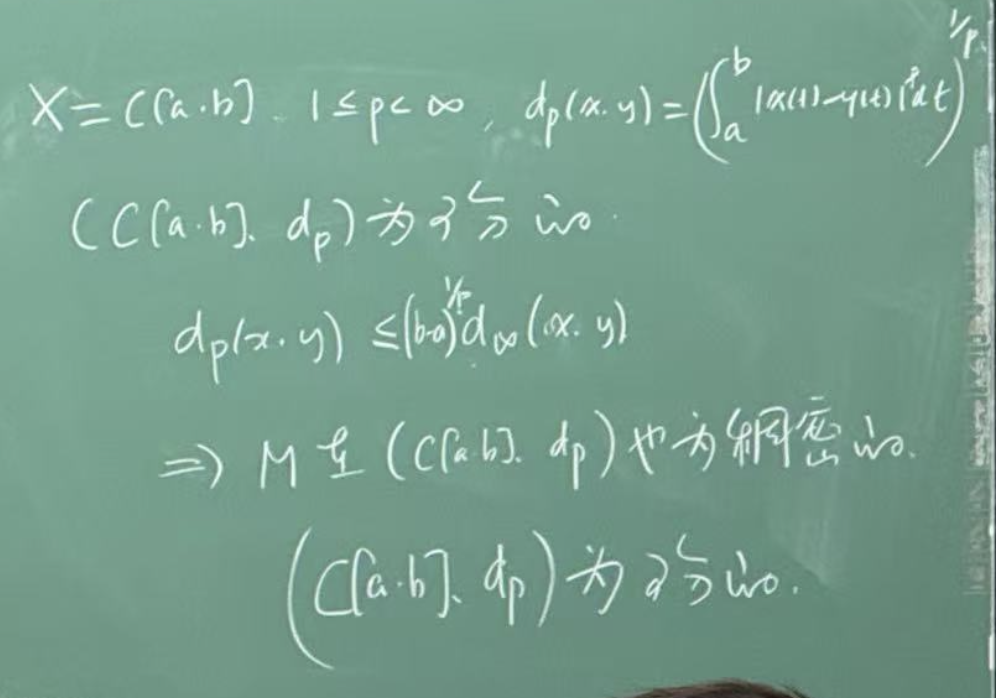 X = C[a.b]. 1 ≤ p < ∞, d_p(x.y) = (∫_a^b |x(t)-y(t)|^p dt)^{1/p}.
(C[a.b]. d_p) 为可分的.
d_p(x.y) ≤ (b-a)^{1/p} d_∞(x.y)
⇒ M 在 (C[a.b]. d_p) 也为稠密的.
(C[a.b]. d_p) 为可分的.